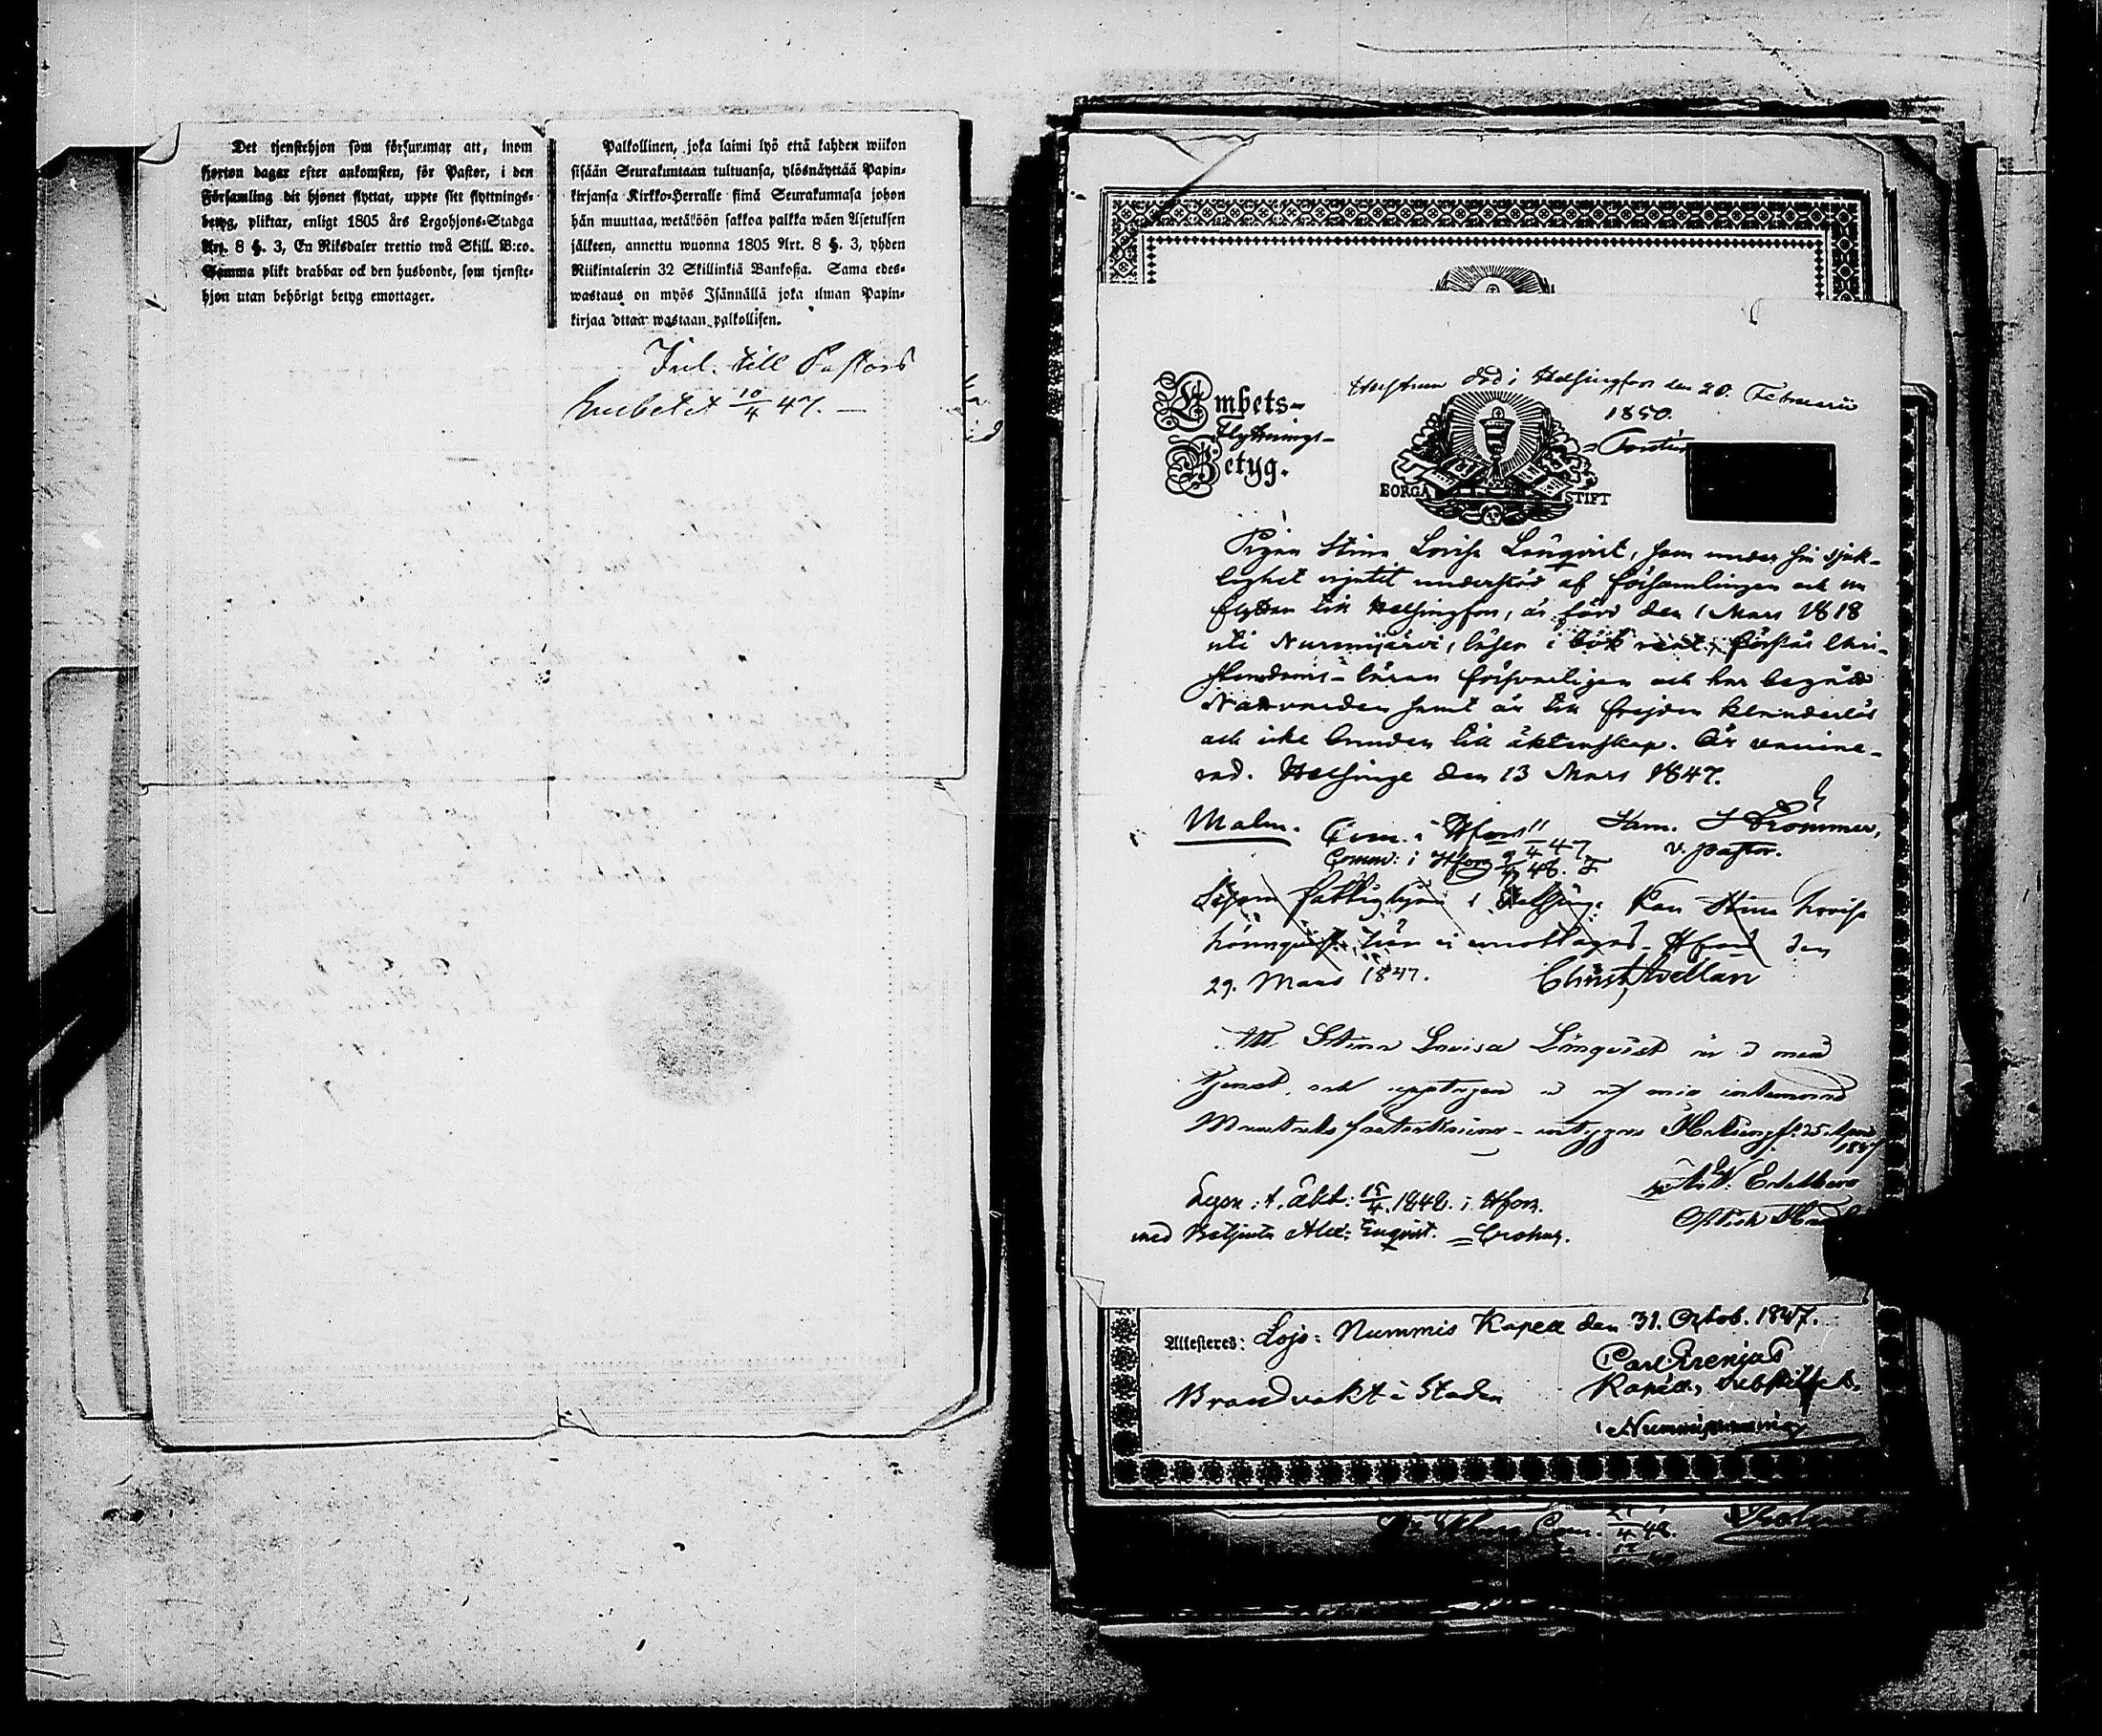 Det tjenstehjon som försummar att, inom
fjorton dagar efter ankomsten, för Pastor, i den
Församling dit hjonet flyttat, uppte sitt flyttnings-
betyg, pliktar, enligt 1805 års Legohjons-Stadga
Art. 8 §. 3, En Riksdaler trettio twå Skill. B:co.
Samma plikt drabbar ock den husbonde, som tjenste-
hjon utan behörigt betyg emottager.
Palkollinen, joka laimi lyö että kahden wiikon
sisään Seurakuntaan tultuansa, ylösnäyttää Papin-
kirjansa Kirkko-Herralle siinä Seurakunnasa johon
hän muuttaa, wetäköön sakkoa palkka wäen Asetuksen
jälkeen, annettu wuonna 1805 Art. 8 §. 3, yhden
Riikintalerin 32 Skillinkiä Bankoßa. Sama edes-
wastaus on myös Isännällä joka ilman Papin-
kirjaa ottaa wastaan palkollisen.
Inl. till Pastors
Embetet 10/4 47.
Hustrun död i Helsingfors den 20. Februarii
1850.
Embets-
Flyttnings-
Betyg.
BORGÅ STIFT
Pigan Stina Lovisa Lönqvist, som under sin sjuk-
lighet njutit understöd af församlingen och nu
flyttar till Helsingfors, är född den 1 Mars 1818
uti Nurmijärvi, läser i bok rent, förstår Chri-
stendoms-läran försvarligen och har begått
Nattvarden samt är till frejden klanderlös
och icke bunden till äktenskap. Är vaccine-
rad. Helsinge den 13 Mars 1847.
Malm. Com. i Hfors 11/4 47
v. pastor.
Comm: i Hfors 48.
Såsom fattighjon i Helsinge kan Stina Lovisa
Lönnqvist här ej emottagas. Hfors den
29. Mars 1847. Christ. Avellan
Att Stina Lovisa Lönqvist är i min
tjenst, och upptagen af mig
Mantals intygar Helsingf. 25 April
1847
Lysn: t. äkt: 15/4 1848. i Hfors.
med Betjenten Alex: Enqvist.
Attesteres: Lojo: Nummis Kapell den 31. Octob. 1847.
Carl Grenjus
Brandvakt i Staden Kapell.
Com. 21/4 48.